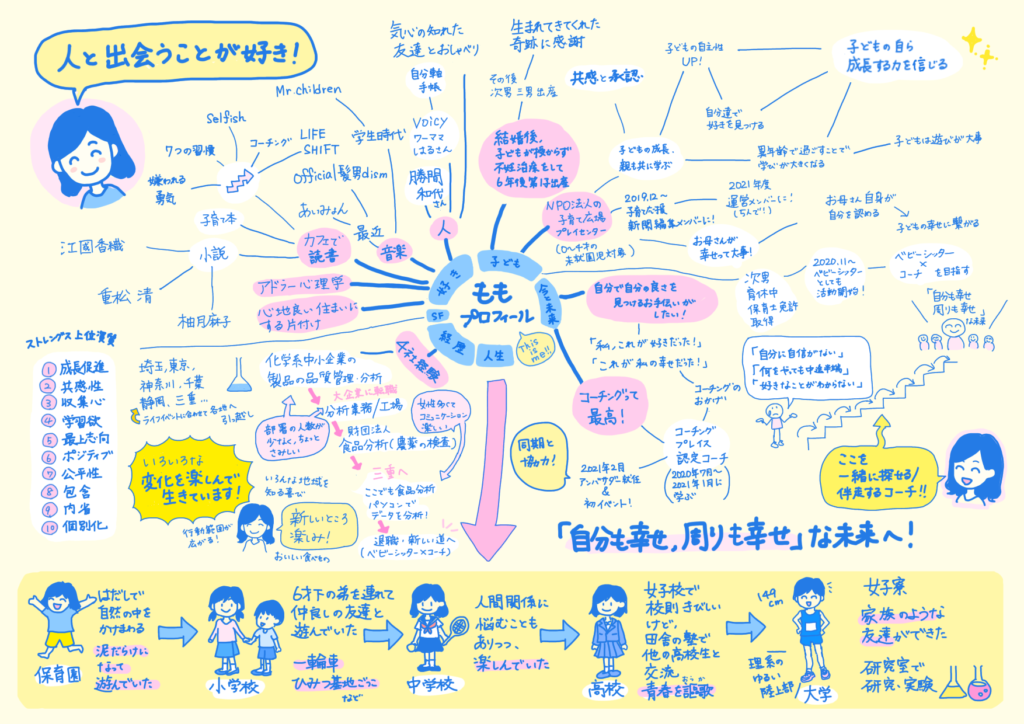 人と出会うことが好き！
気心の知れた
友達とおしゃべり
自分軸
手帳
Voicy
ワーママ
はるさん
勝間
和代さん
人
Mr.children
学生時代
Official髭男dism
あいみょん
最近
音楽
Selfish
7つの習慣
コーチング
LIFE
SHIFT
嫌われる
勇気
子育て本
小説
江國香織
重松 清
柚月麻子
カフェで
読書
アドラー心理学
心地良い住まいに
する片付け
好き！
子ども
今と未来
人生
経歴
SF
もも
プロフィール
This
is
me!!
生まれてきてくれた
奇跡に感謝
その後
次男三男出産
結婚後、
子どもが授からず
不妊治療をして
6年後第1子出産
共感と承認
子どもの自主性
UP！
子どもの自ら
成長する力を信じる
自分達で
好きを見つける
子どもの成長、
親も共に学ぶ
異年齢で過ごすことで
学びが大きくなる
子どもは遊びが大事
NPO法人の
子育て広場
プレイセンター
(0〜4才の
未就園児対象)
2019.12〜
子育て広場
新聞編集メンバーに！
2021年度
運営メンバーに！
お母さんが
幸せって大事！
お母さん自身が
自分を認める
子どもの幸せに繋がる
自分で自分の良さを
見つけるお手伝いが
したい！
次男
育休中
保育士免許
取得
2020.11〜
ベビーシッター
としても
活動開始！
ベビーシッター
×
コーチ を目指す
「自分も幸せ
周りも幸せ」
な未来
「私、これが好きだった！」
「これが私の幸せだった！」
コーチングって
最高！
コーチングの
おかげ
コーチング
プレイス
認定コーチ
(2020年7月〜
2021年1月に
学ぶ)
2021年2月
アンバサダー就任
&
初イベント！
同期と
協力！
「自分に自信がない」
「何をやっても中途半端」
「好きなことがわからない」
ここを
一緒に探せる/
伴走するコーチ!!
「自分も幸せ、周りも幸せ」な未来へ！
ストレングス上位資質
1 成長促進
2 共感性
3 収集心
4 学習欲
5 最上志向
6 ポジティブ
7 公平性
8 包含
9 内省
10 個別化
埼玉、東京、
神奈川、千葉
静岡、三重…
ライフイベントに合わせて各地へ
引っ越し
いろいろな
変化を楽しんで
生きています！
いろんな地域を
知る喜び
行動範囲が
広がる！
新しいところ
楽しみ！
おいしい食べもの
4社経験
化学系中小企業の
製品の品質管理・分析
大企業に転職
分析業務/工場
部署の人数が
少なく、ちょっと
さみしい
女性多くて
コミュニケーション
楽しい！
財団法人
食品分析(農薬の検査)
三重へ
ここでも食品分析
パソコンで
データを分析！
退職・新しい道へ
(ベビーシッター×コーチ)
保育園
はだしで
自然の中を
かけまわる
泥だらけに
なって
遊んでいた
小学校
6才下の弟を連れて
仲良しの友達と
遊んでいた
一輪車
ひみつ基地ごっこ
など
中学校
人間関係に
悩むことも
ありつつ、
楽しんでいた
高校
女子校で
校則きびしい
けど、
田舎の塾で
他の高校生と
交流
青春を謳歌
おうか
149
cm
理系の
ゆるい
陸上部
大学
女子寮
家族のような
友達ができた
研究室で
研究、実験